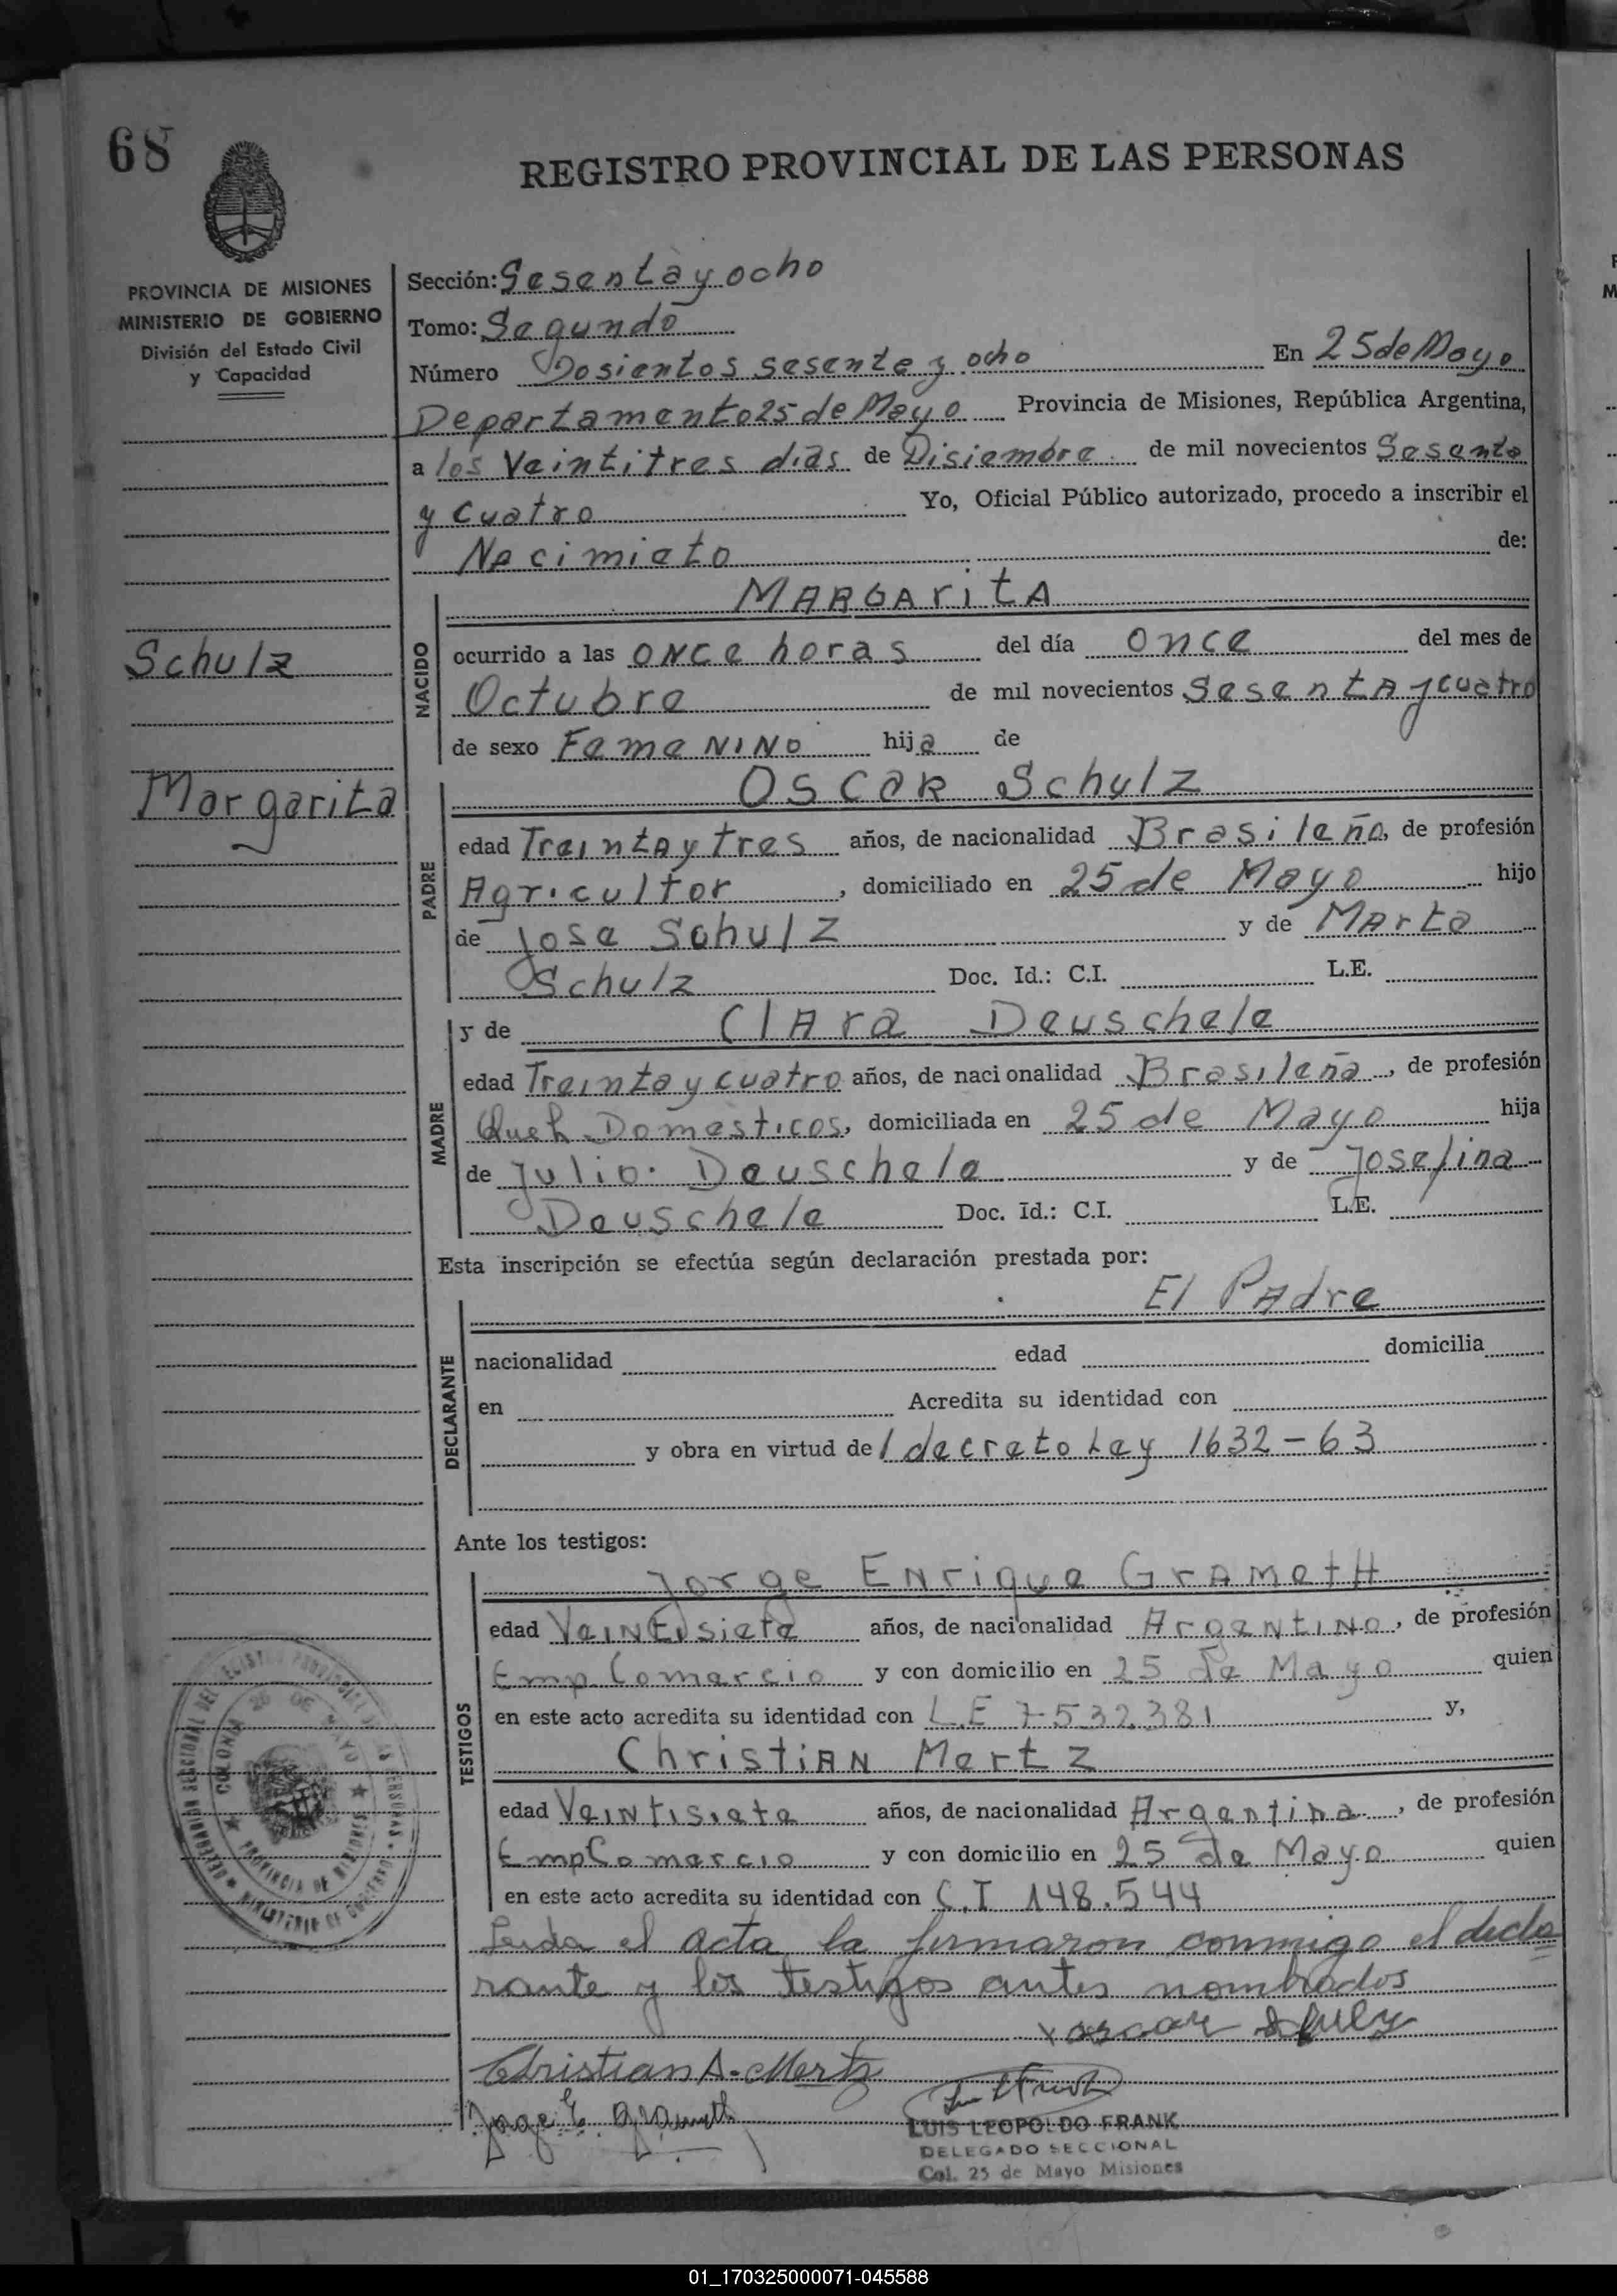 68
REGISTRO PROVINCIAL DE LAS PERSONAS
PROVINCIA DE MISIONES
MINISTERIO DE GOBIERNO
División del Estado Civil
y Capacidad
Sección: Sesenta y ocho
Tomo: Segundo
Número Dosientos sesente y ocho En 25 de Mayo
Departamento 25 de Mayo Provincia de Misiones, República Argentina,
a los Veintitres dias de Disiembre de mil novecientos Sesenta
y Cuatro Yo, Oficial Público autorizado, procedo a inscribir el
Nacimieto de:
MARGARitA
Schulz
Margarita
NACIDO
ocurrido a las ONCe horas del día once del mes de
Octubre de mil novecientos SesentA y cuatro
de sexo FemeNINo hija de
PADRE
OSCaR Schulz
edad TreintAy tres años, de nacionalidad Brasileña, de profesión
Agricultor, domiciliado en 25 de Mayo hijo
de Jose Schulz y de MArta
Schulz Doc. Id.: C.I. L.E.
MADRE
y de ClAra Deuschele
edad Treinta y cuatro años, de nacionalidad Brasileña, de profesión
Queh. Domesticos, domiciliada en 25 de Mayo hija
de Julio Deuschele y de Josefina
Deuschele Doc. Id.: C.I. L.E.
Esta inscripción se efectúa según declaración prestada por:
DECLARANTE
El PAdre
nacionalidad edad domicilia
en Acredita su identidad con
y obra en virtud del decreto Ley 1632-63
Ante los testigos:
TESTIGOS
Jorge ENrique GrAMetH
edad VeiNtisiete años, de nacionalidad ArgeNtiNo, de profesión
Emp. Comercio y con domicilio en 25 de Mayo quien
en este acto acredita su identidad con L.E 7.532.381 y,
ChristiAN Mertz
edad VeiNtisiete años, de nacionalidad Argentina, de profesión
Emp Comercio y con domicilio en 25 de Mayo quien
en este acto acredita su identidad con C.I 148.544
Leida el acta, la firmaron conmigo el decla
rante y los testigos antes nombrados
x oscar Schulz
Christian A. Mertz
Jorge E. Grameth
LUIS LEOPOLDO FRANK
DELEGADO SECCIONAL
Col. 25 de Mayo Misiones
DELEGACIÓN SECCIONAL DEL REGISTRO PROVINCIAL DE LAS PERSONAS
MINISTERIO DE GOBIERNO
COLONIA 25 DE MAYO
PROVINCIA DE MISIONES
01_170325000071-045588